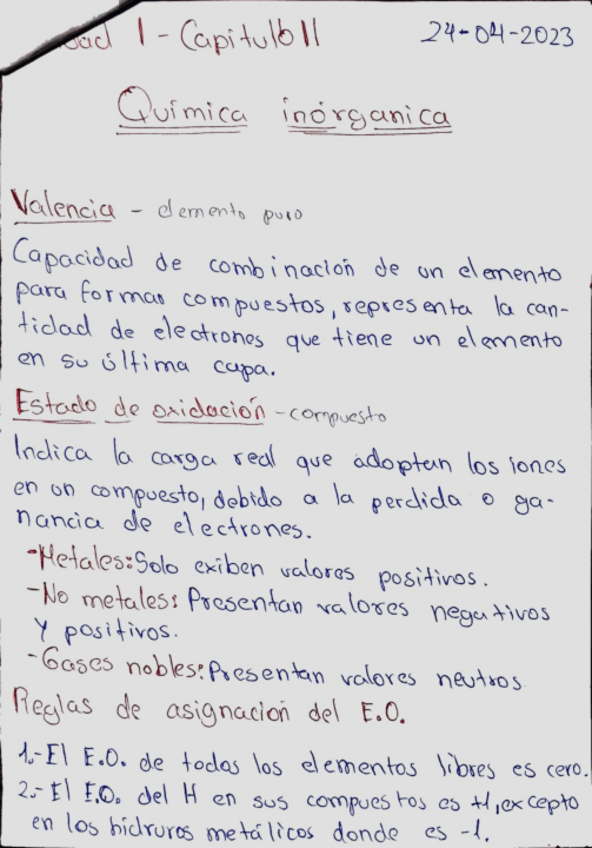 dad 1 - Capitulo II 24-04-2023
Química inórganica
Valencia - elemento puro
Capacidad de combinación de un elemento
para formar compuestos, representa la can-
tidad de electrones que tiene un elemento
en su última capa.
Estado de oxidación - compuesto
Indica la carga real que adoptan los iones
en un compuesto, debido a la perdida o ga-
nancia de electrones.
-Metales: Solo exiben valores positivos.
-No metales: Presentan valores negativos
y positivos.
-Gases nobles: Presentan valores neutros
Reglas de asignación del E.O.
1.-El E.O. de todos los elementos libres es cero.
2.- El E.O. del H en sus compuestos es +1, excepto
en los hidruros metálicos donde es -1.